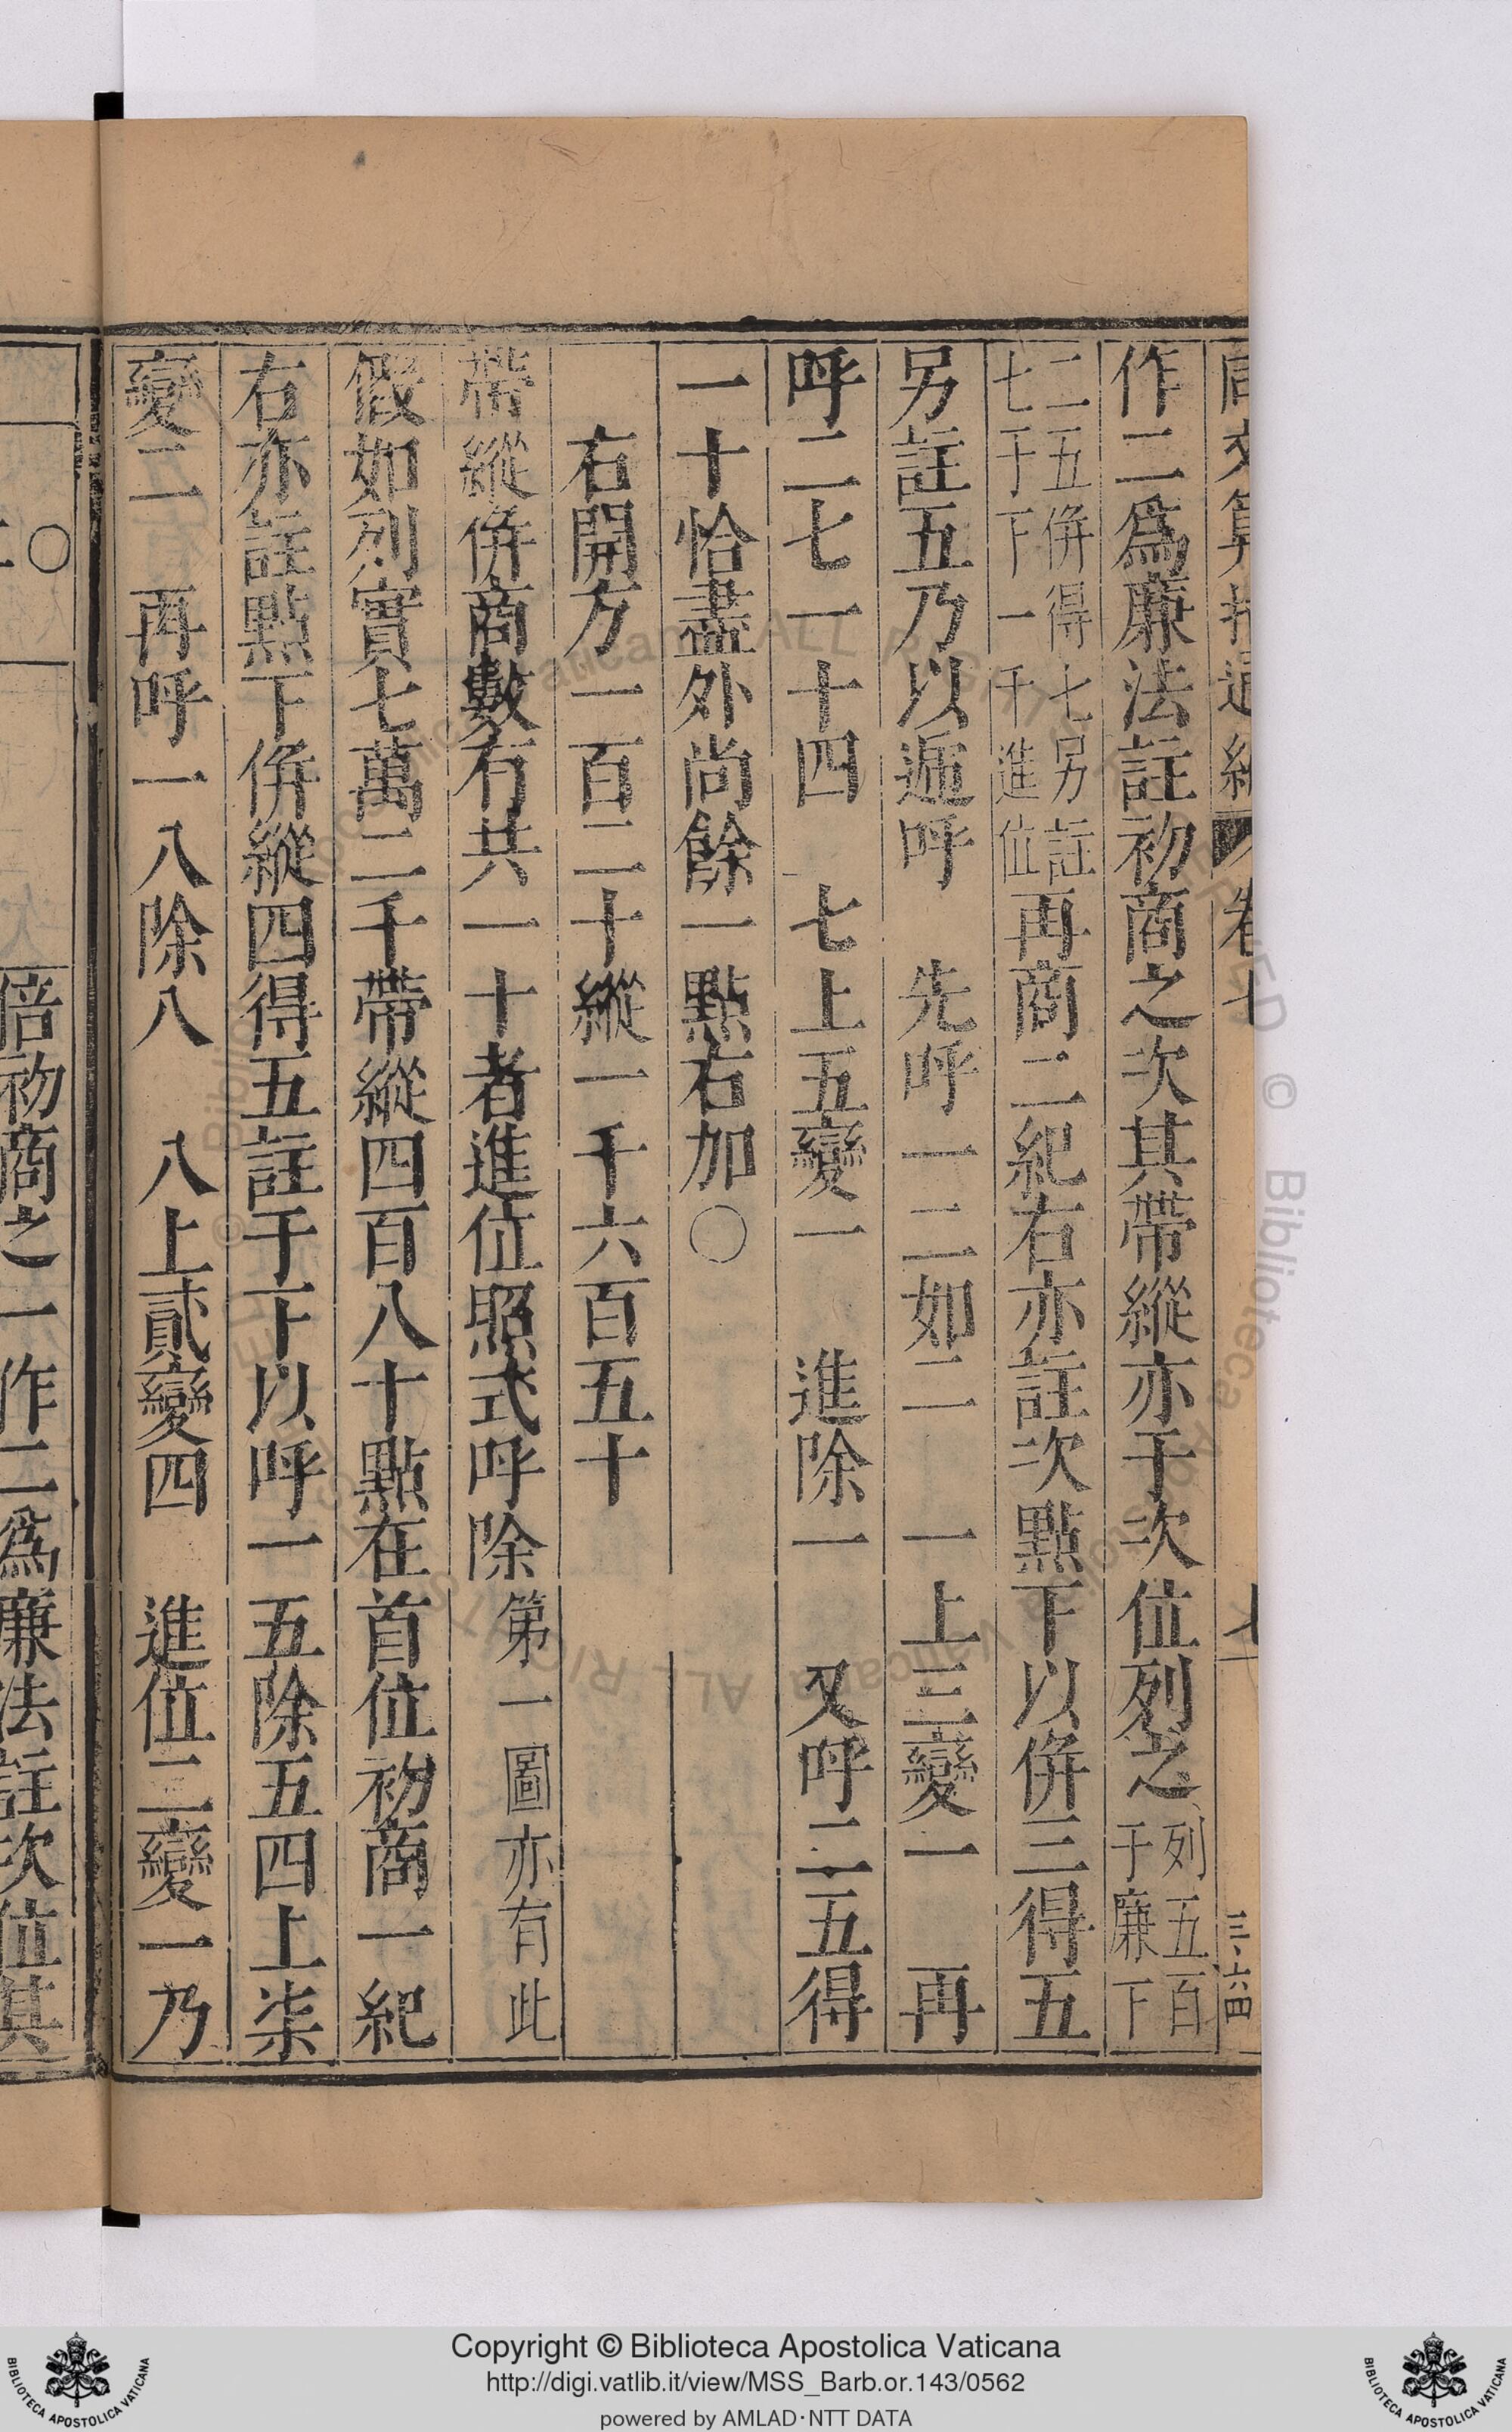 作二爲廉法註初商之次其帶縱亦于次位列之列五百于廉下
二五併得七另註七于下一千進位再商二紀右亦註次點下以併三得五
另註五乃以遞呼 先呼一二如二 一上三變一 再
呼二七一十四 七上五變一 進除一 又呼二五得
一十恰盡外尚餘一點右加○
右開方一百二十縱一千六百五十
帶縱併商數有共一十者進位照式呼除 第一圖亦有此
假如列實七萬二千帶縱四百八十點在首位初商一紀
右亦註點下併縱四得五註于下以呼一五除五四上柒
變二 再呼一八除八 八上貳變四 進位二變一乃
倍初商之一作二爲廉法註次位其
Copyright © Biblioteca Apostolica Vaticana
http://digi.vatlib.it/view/MSS_Barb.or.143/0562
powered by AMLAD·NTT DATA
BIBLIOTECA APOSTOLICA VATICANA
BIBLIOTECA APOSTOLICA VATICANA